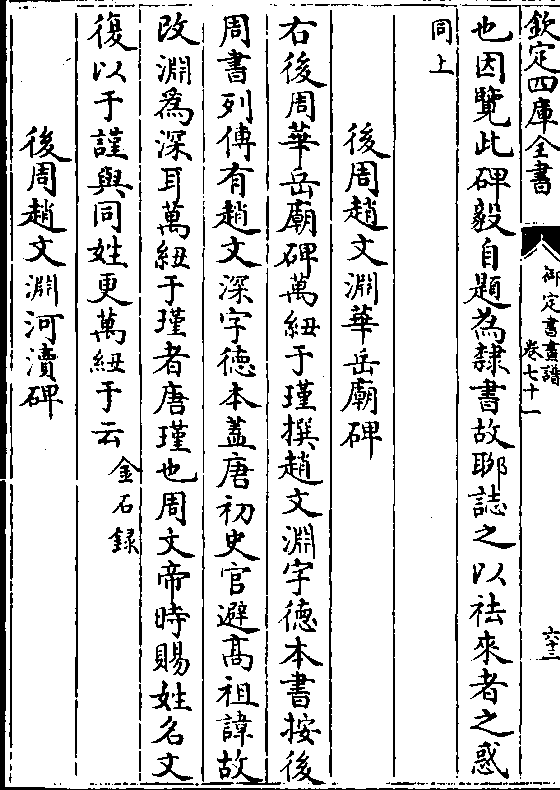 欽定四庫全書
御定書畫譜
卷七十一
六十三
也因覽此碑毅自題為隸書故聊誌之以祛來者之惑
同上
後周趙文淵華岳廟碑
右後周華岳廟碑萬紐于瑾撰趙文淵字德本書按後
周書列傳有趙文深字德本蓋唐初史官避髙祖諱故
改淵為深耳萬紐于瑾者唐瑾也周文帝時賜姓名文
復以于謹與同姓更萬紐于云
金石録
後周趙文淵河瀆碑